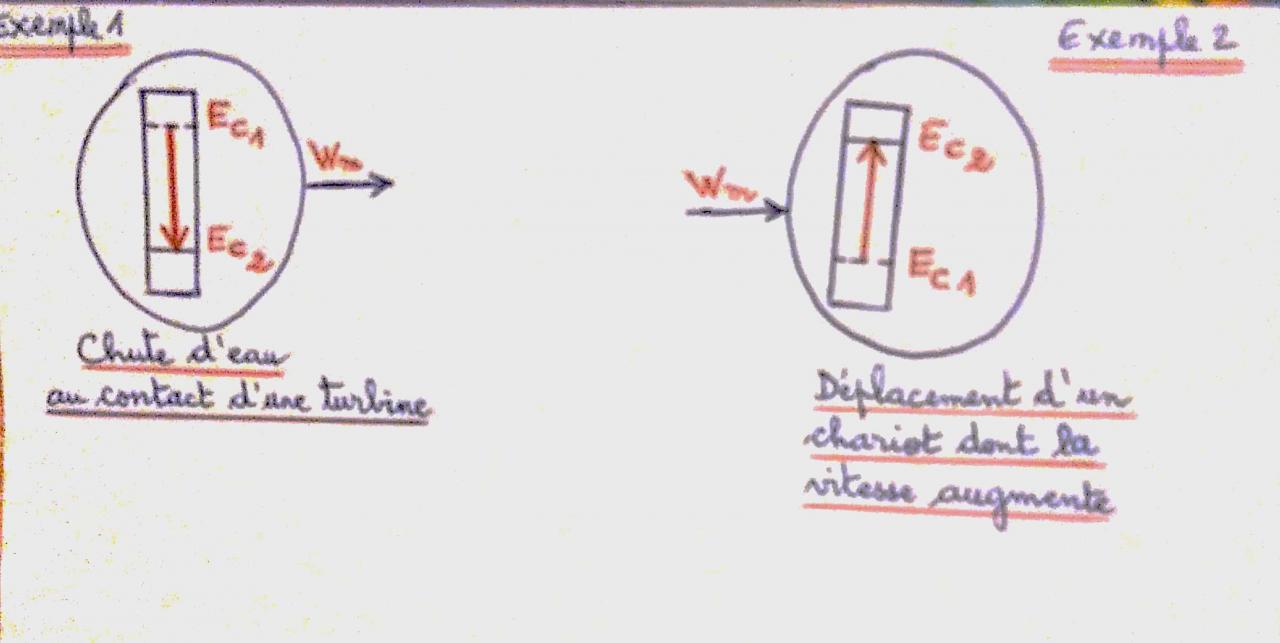 Exemple 1
Exemple 2
EC1
Wm
EC2
Chute d'eau
au contact d'une turbine
EC2
Wm
EC1
Déplacement d'un
chariot dont la
vitesse augmente